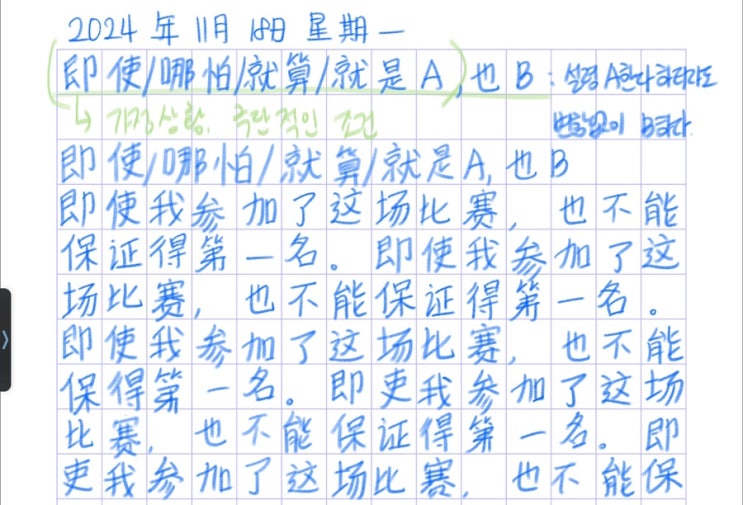 2024 年 11月 18日 星期一
即使/哪怕/就算/就是 A, 也 B : 설령 A한다 하더라도
↳ 가정상황. 극단적인 조건 변함없이 B하다.
即使/哪怕/就算/就是A, 也B
即使我参加了这场比赛, 也不能
保证得第一名。即使我参加了这
场比赛, 也不能保证得第一名。
即使我参加了这场比赛, 也不能
保得第一名。即吏我参加了这场
比赛, 也不能保证得第一名。即
吏我参加了这场比赛, 也不能保